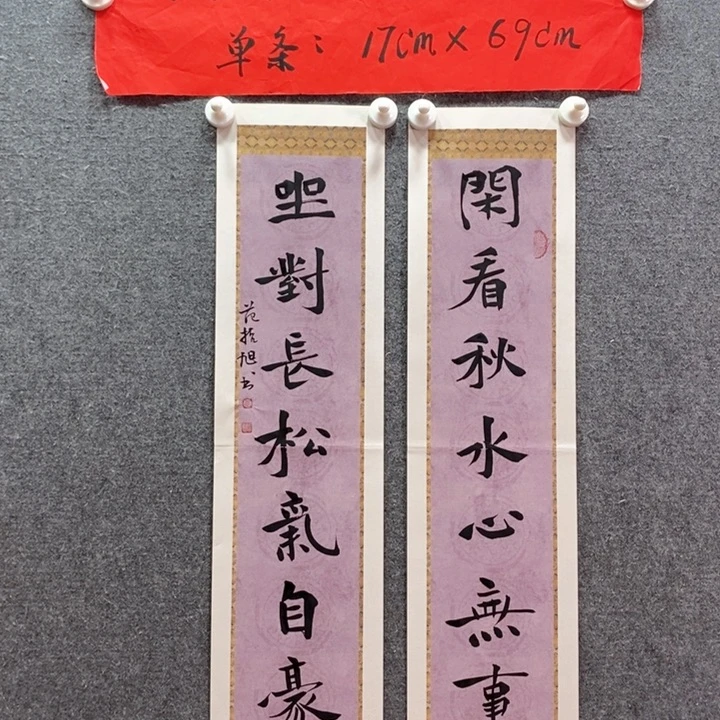 单条：17cm×69cm
閑看秋水心無事
坐對長松氣自豪